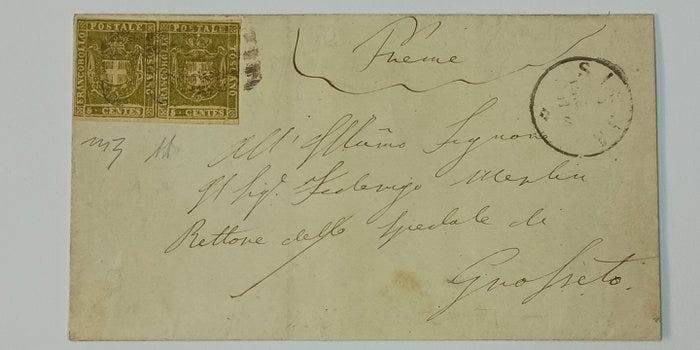 FRANCOBOLLO POSTALE TOSCANO
5 CENTES
FRANCOBOLLO POSTALE TOSCANO
5 CENTES
Preme
SIENA
All'Illmo Signore
Il Sig. Federigo Merlin
Rettore dello Spedale di
Grosseto.